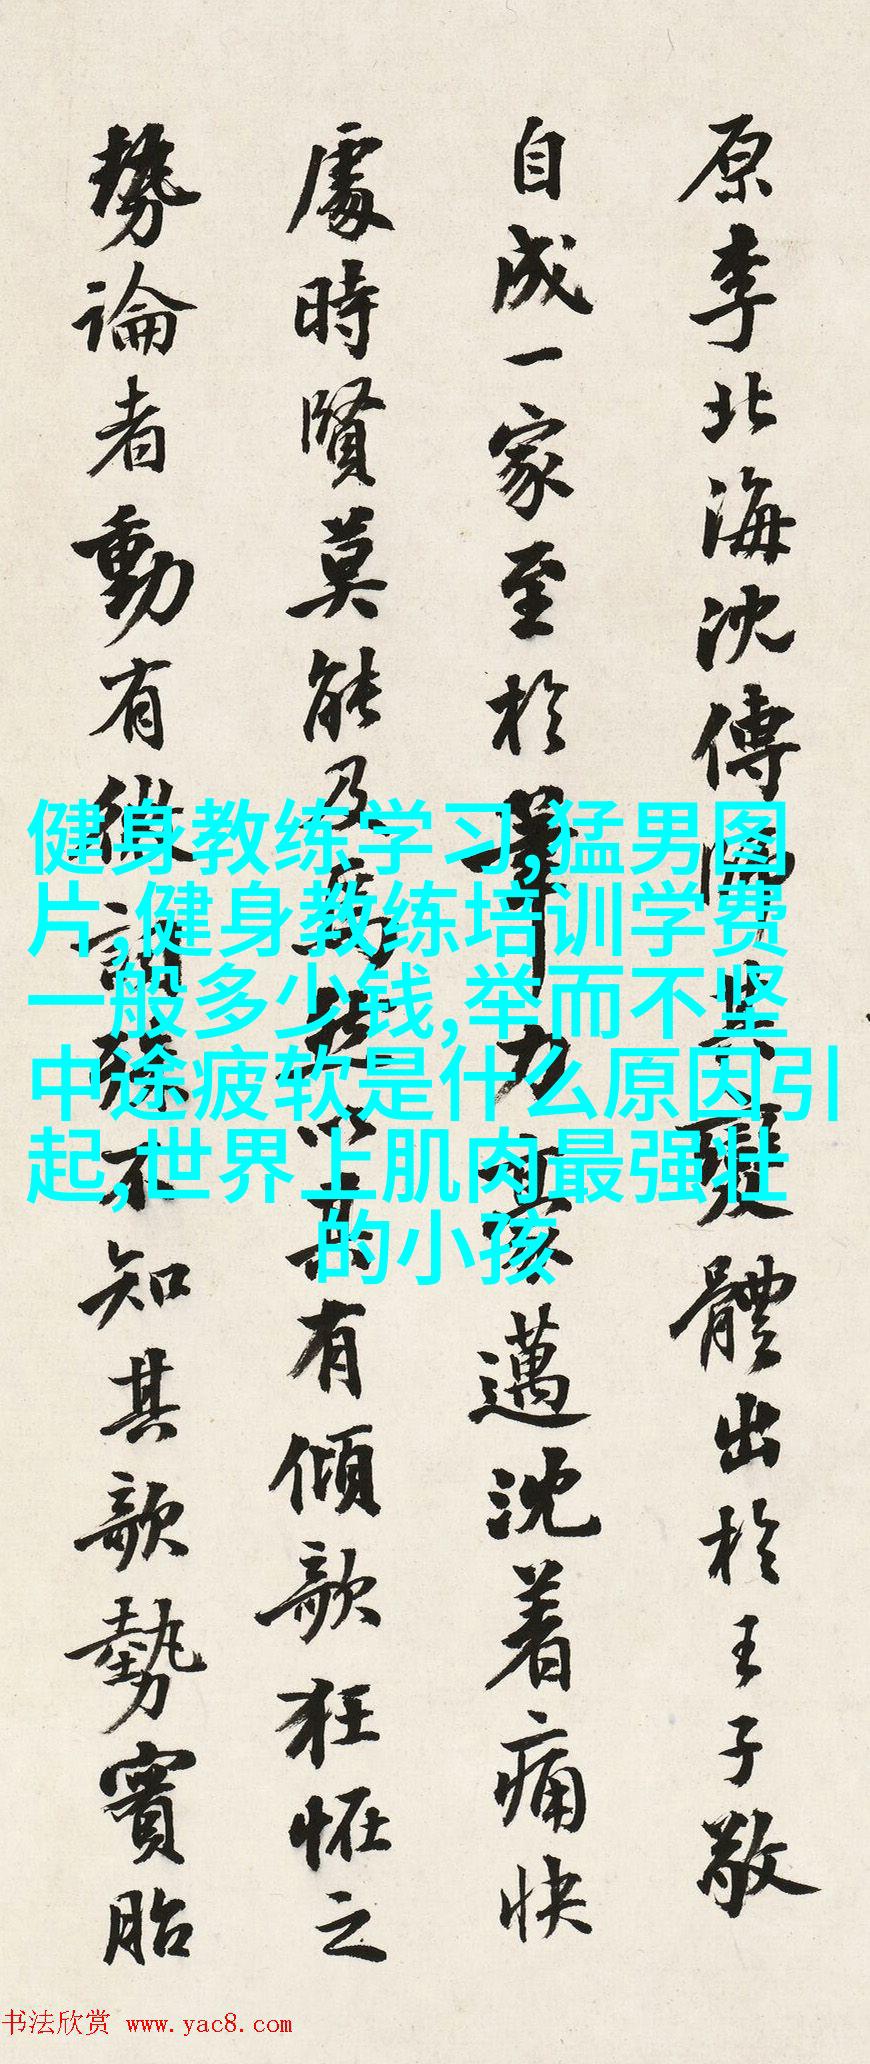 原李北海沈傳師其變體出於王子敬
自成一家至於筆力豪邁沈着痛快
處時賢莫能及爲於以其有傾欹狂怪之
勢論者動有微詞殊不知其欹勢實胎
健身教练学习,猛男图
片,健身教练培训学费
一般多少钱,举而不坚
中途疲软是什么原因引
起,世界上肌肉最强壮
的小孩
书法欣赏 www.yac8.com